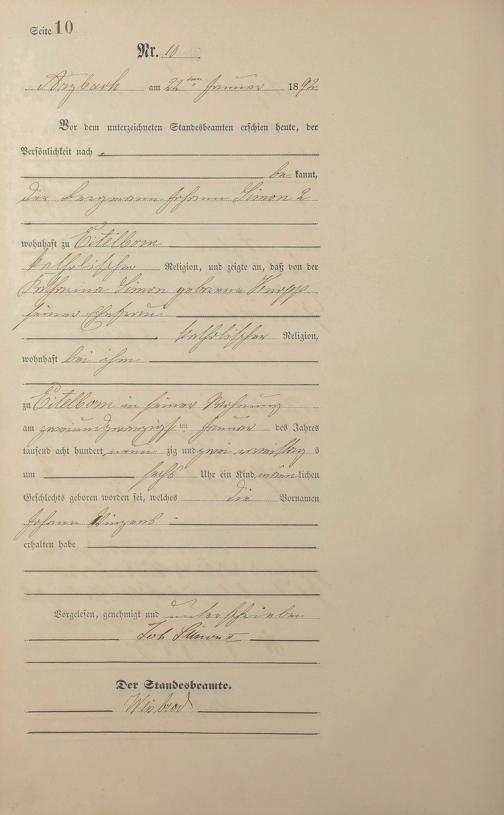 Seite 10
Nr. 10
Arzbach am 22ten Januar 1892
Vor dem unterzeichneten Standesbeamten erschien heute, der
Persönlichkeit nach
be kannt,
der Bergmann Johann Simon 2
wohnhaft zu Eitelborn
katholischer Religion, und zeigte an, daß von der
Katharina Simon geborene Knopp
seiner Ehefrau
katholischer Religion,
wohnhaft bei ihm
zu Eitelborn in seiner Wohnung
am zweiundzwanzigsten Januar des Jahres
tausend acht hundert neun zig und zwei vormittag s
um sechs Uhr ein Kind männlichen
Geschlechts geboren worden sei, welches die Vornamen
Johann
erhalten habe
Vorgelesen, genehmigt und unterschrieben
Joh Simon II
Der Standesbeamte.